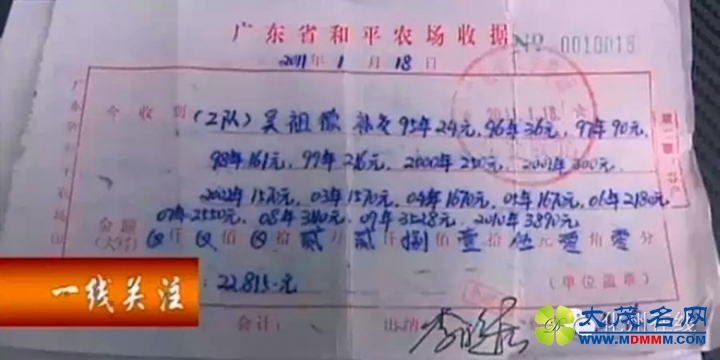 广东省和平农场收据
№ 0010018
2011年1月18日
今收到(2队)吴祖 补交95年24元、96年36元、97年90元、
98年161元、99年216元、2000年250元、2001年300元、
2002年1570元、03年1570元、04年1670元、05年1670元、06年2180元
07年2550元、08年 元、09年3528元、2010年3890元
金额(大写) 仟 佰 拾贰万贰仟捌佰壹拾伍元零角零分
：22.815.元
(单位盖章)
会计： 出纳
2011.1.18
一线关注
大茂名网
WWW.MDMMM.COM